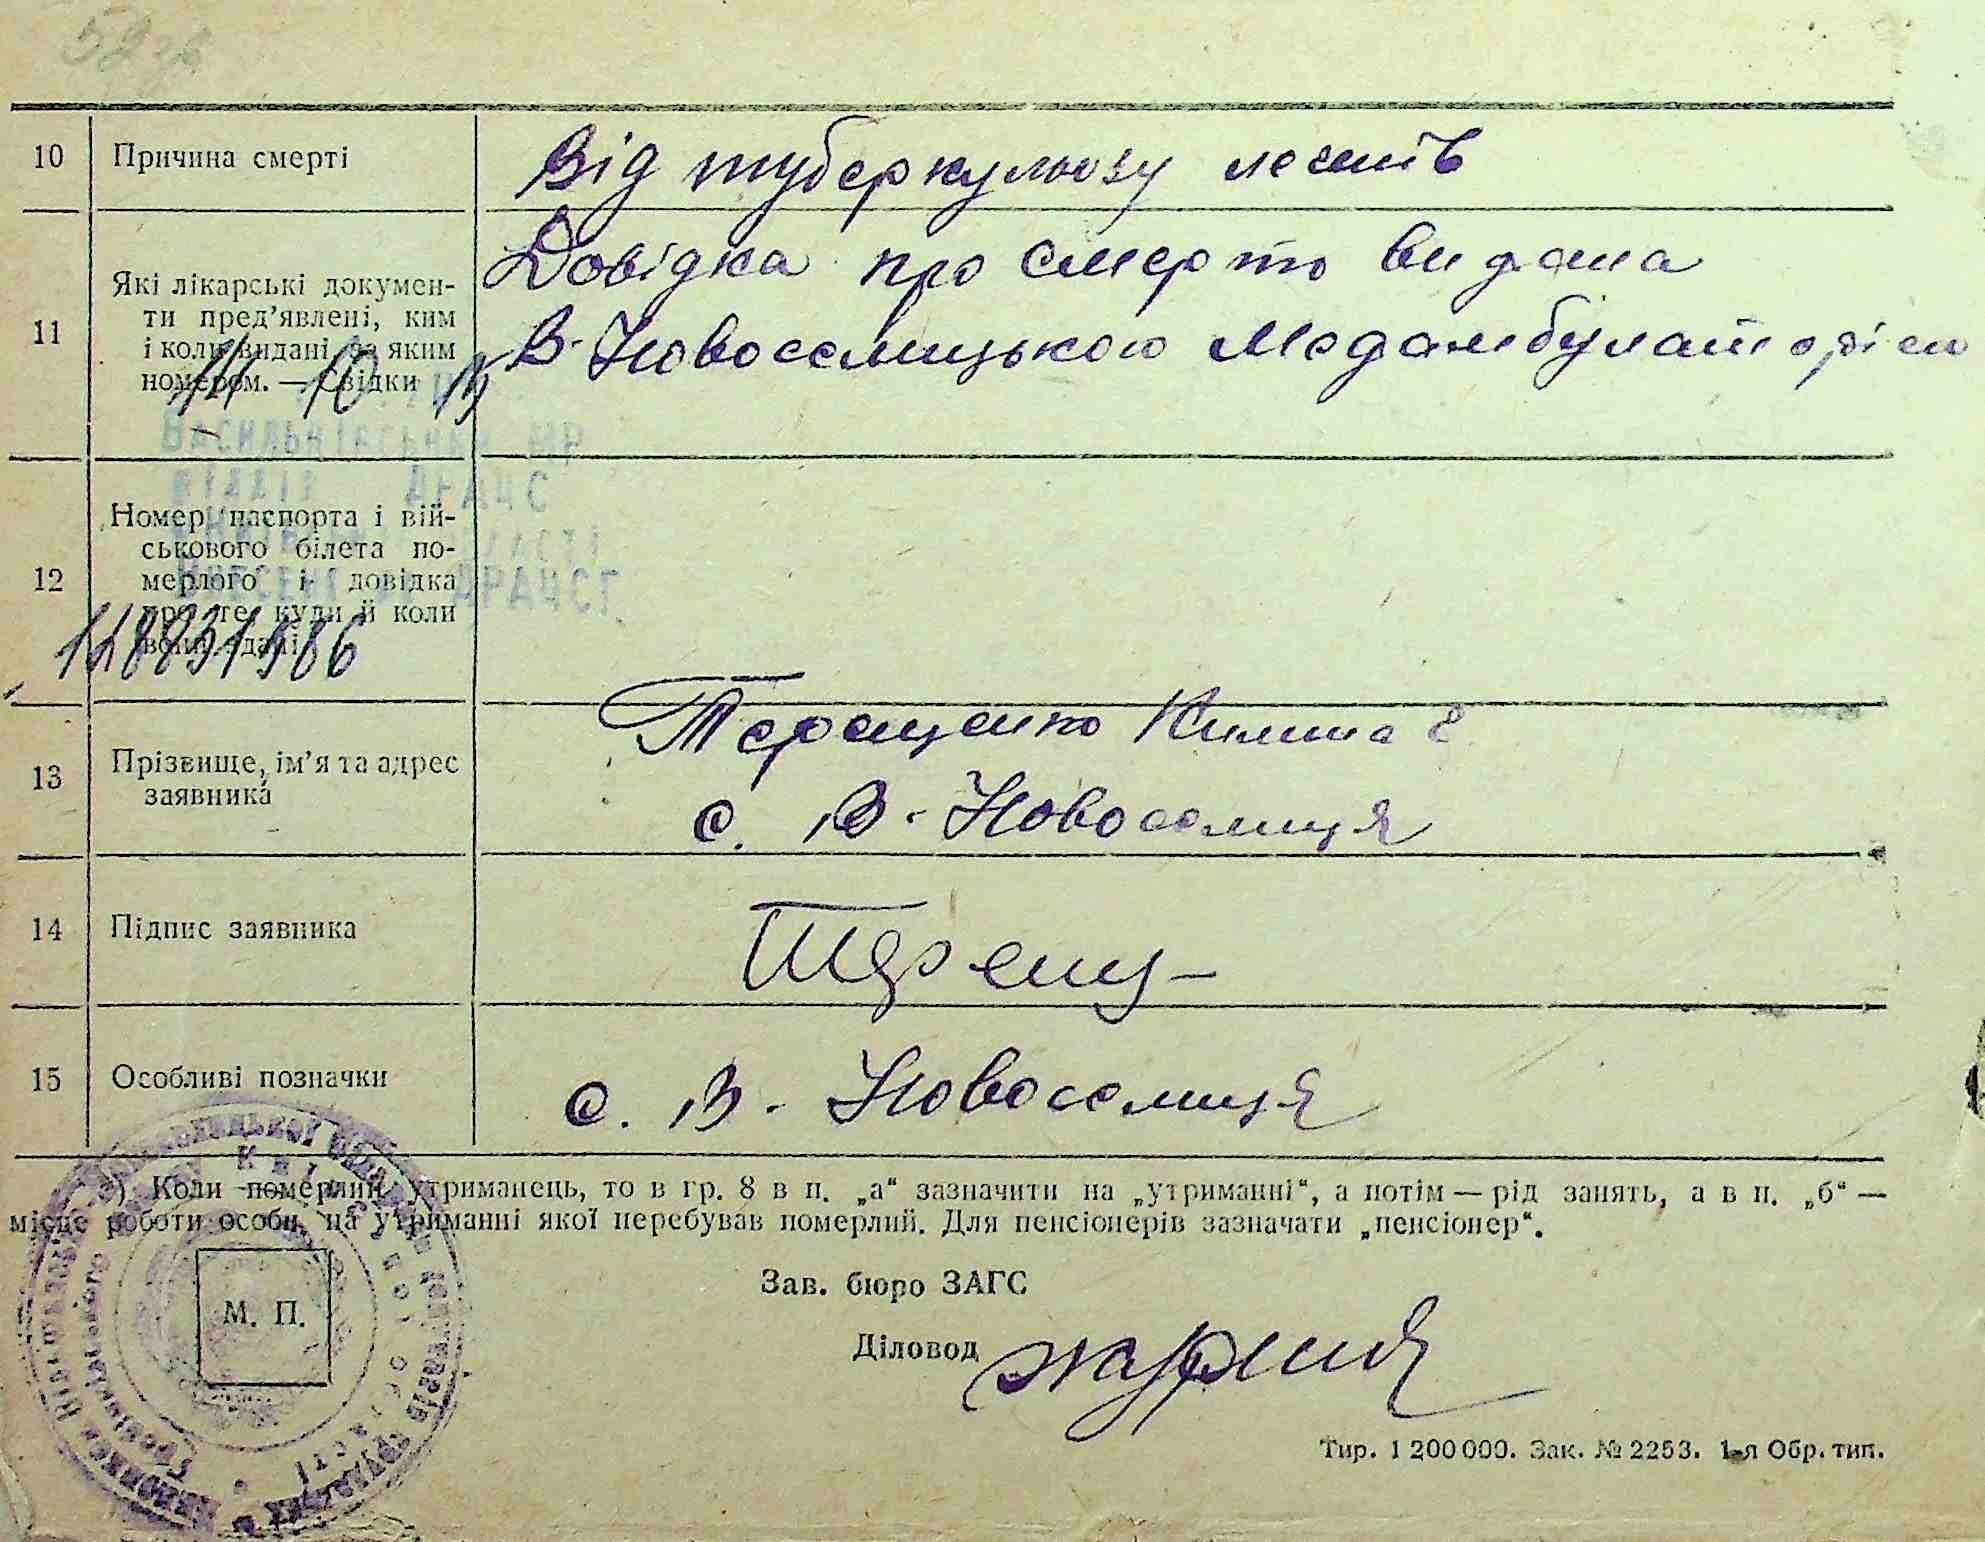 52 зв
10 Причина смерті Від туберкульозу легенів
11 Які лікарські докумен-
ти пред'явлені, ким
і коли видані, за яким
номером. — Свідки
Довідка про смерть видана
В-Новоселицькою Медамбулаторією
11 10
Васильківський МР
відділ ДРАЦС
12 Номер паспорта і вій-
ськового білета по-
мерлого і довідка
про те, куди й коли
вони здані
13 Прізвище, ім'я та адрес
заявника
Терещенко Килина Є
с. В-Новоселиця
14 Підпис заявника Терещ-
15 Особливі позначки с. В-Новоселиця
*) Коли померлий утриманець, то в гр. 8 в п. „а“ зазначити на „утриманні“, а потім — рід занять, а в п. „б“ —
місце роботи особи, на утриманні якої перебував померлий. Для пенсіонерів зазначати „пенсіонер“.
М. П.
Зав. бюро ЗАГС
Діловод
Тир. 1 200 000. Зак. № 2253. 1-я Обр. тип.